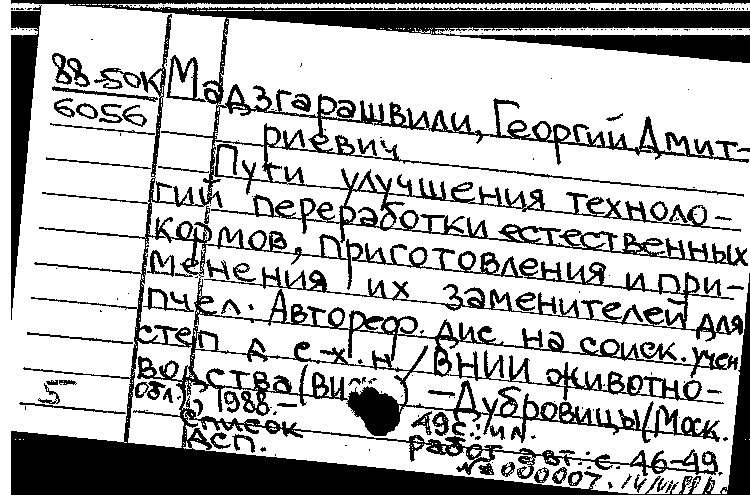 88-50К
6056
Мадзгарашвили, Георгий Дмит-
риевич
Пути улучшения техноло-
гий переработки естественных
кормов, приготовления и при-
менения их заменителей для
пчел. Автореф. дис. на соиск. учен
степ д с-х. н. / ВНИИ животно-
водства (ВИ ) – Дубровицы (Моск.
обл.), 1988.–
49с.: ил.
Список работ авт.: с. 46-49.
5
ДСП.
№ 000007.